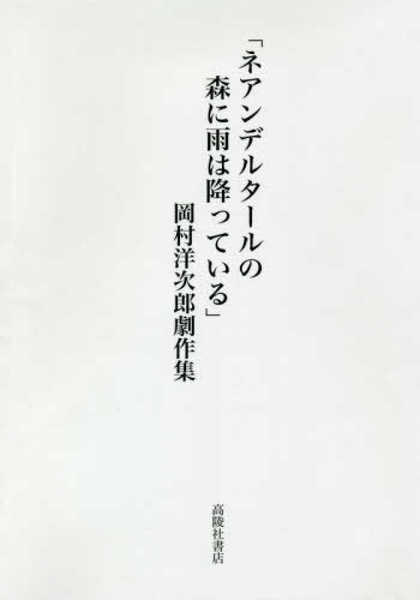 「ネアンデルタールの
森に雨は降っている」
岡村洋次郎劇作集
高陵社書店